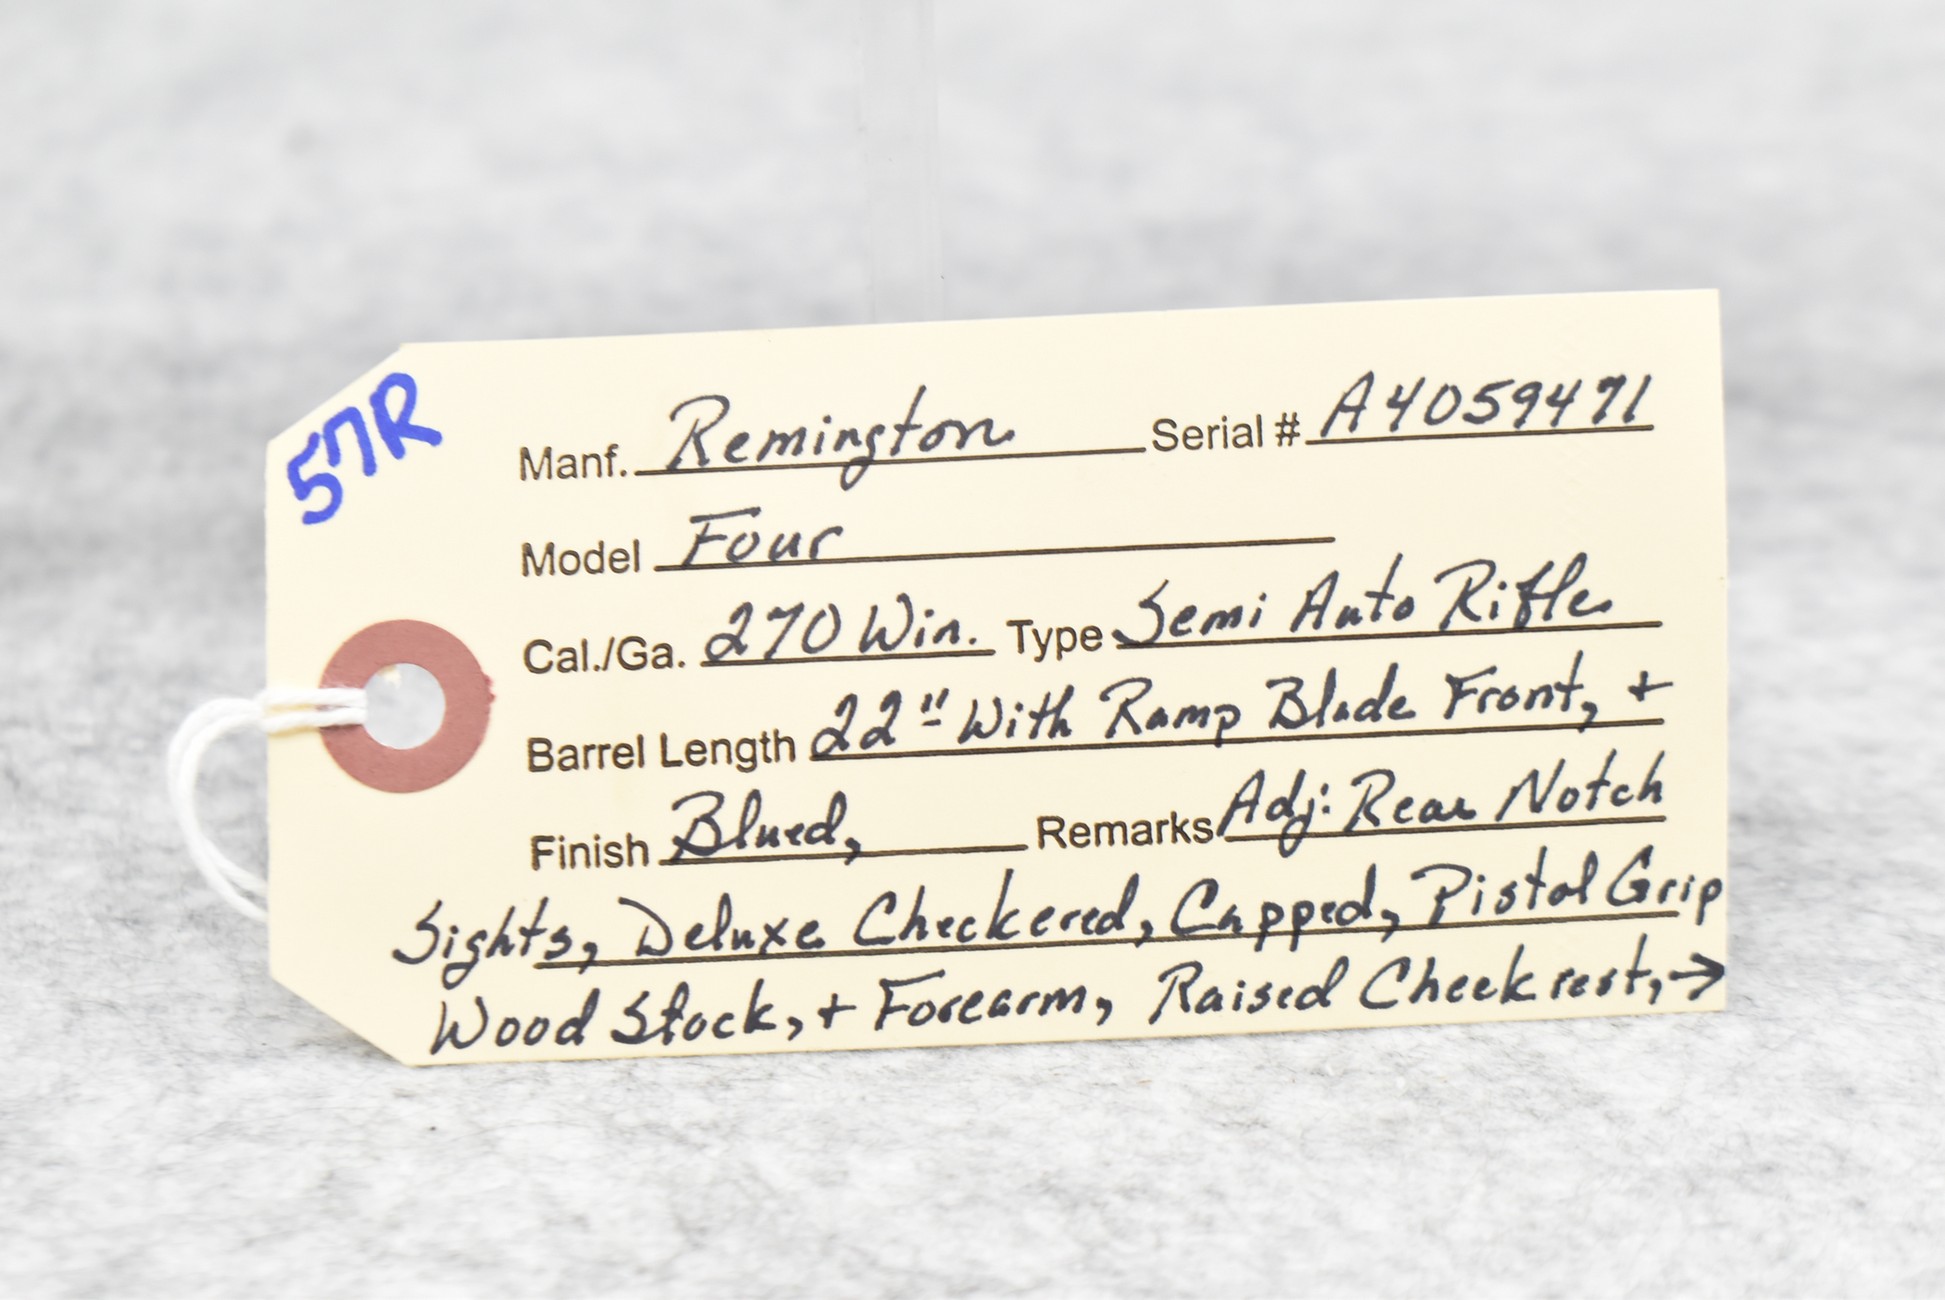 57R
Manf. Remington Serial # A4059471
Model Four
Cal./Ga. 270 Win. Type Semi Auto Rifle
Barrel Length 22" With Ramp Blade Front, +
Finish Blued, Remarks Adj: Rear Notch
Sights, Deluxe Checkered, Capped, Pistol Grip
Wood Stock, + Forearm, Raised Cheekrest, →